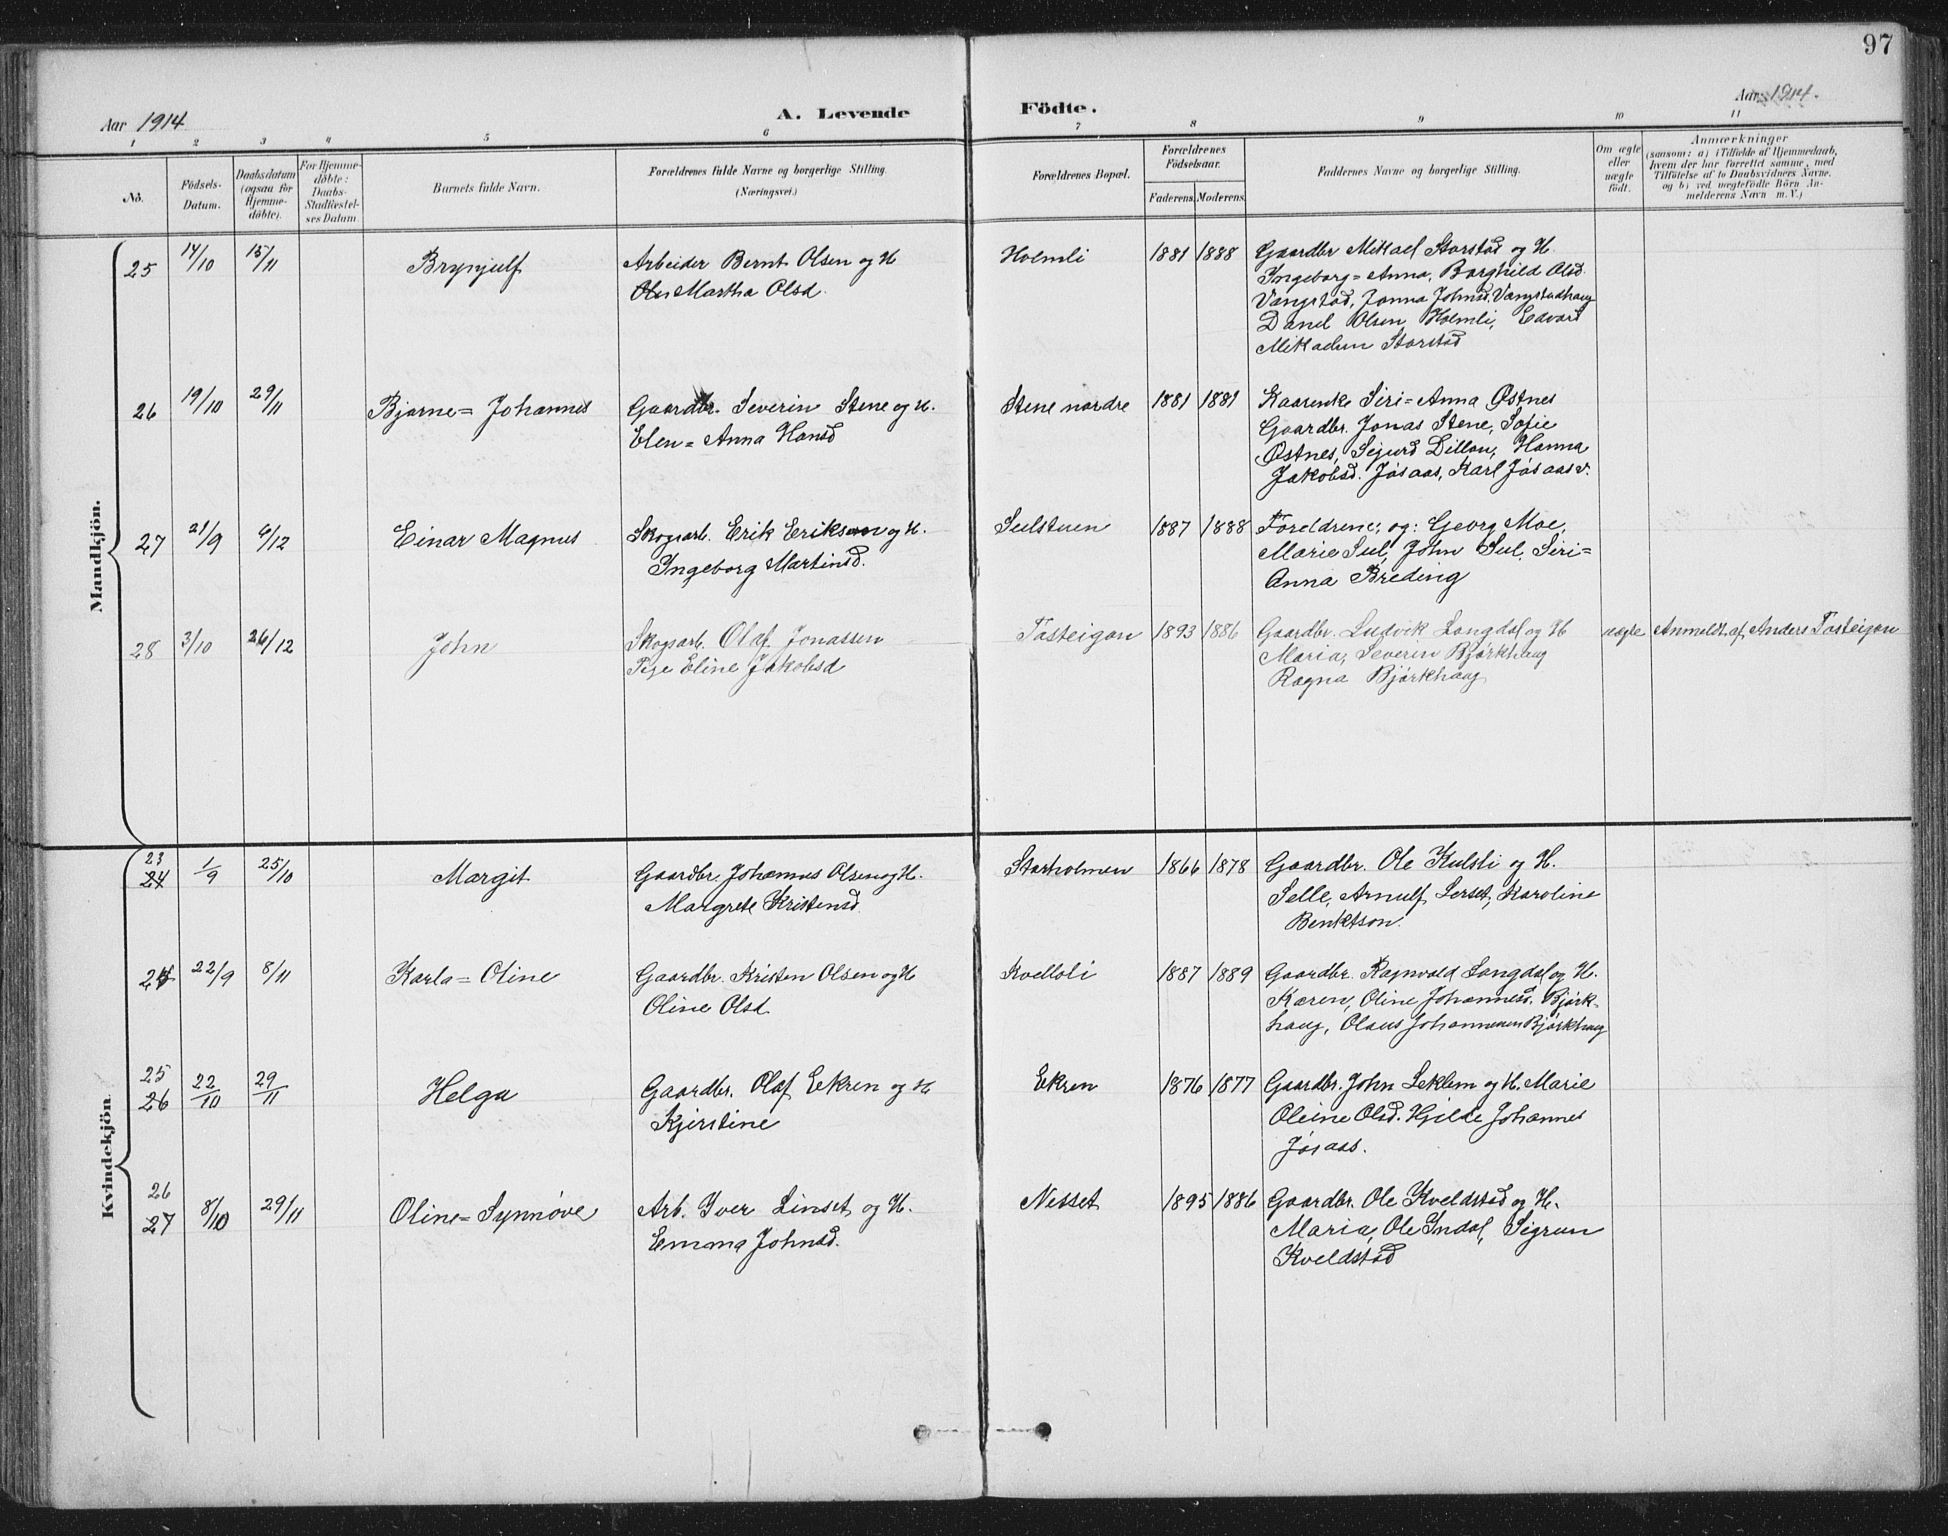 97
Aar 1914
A. Levende Födte.
Aar 1914.
1 2 3 4 5 6 7 8 9 10 11
No.
Födsels-
Datum.
Daabsdatum
(ogsaa for
Hjemme-
døbte).
For Hjemme-
døbte:
Daabs-
Stadfæstel-
ses Datum
Barnets fulde Navn.
Forældrenes fulde Navne og borgerlige Stilling.
(Næringsvei.)
Forældrenes Bopæl.
Forældrenes
Födselsaar.
Faderens. Moderens.
Faddernes Navne og borgerlige Stilling.
Om ægte
eller
uægte
født.
Anmærkninger
(saasom: a) i Tilfælde af Hjemmedaab,
hvem der har forrettet samme, med
Tilføielse af to Daabsvidners Navne,
og b) ved uægtefödte Börn An-
melderens Navn m. V.)
Mandkjön.
25 14/10 15/11 Brynjulf
Arbeider Bernt Olsen og H
Martha Olsd.
Holmli 1881 1888
Gaardbr Mikael Storstad og H.
Ingeborg=Anna, Borghild Olsd.
Vangstad, Jonna Johnsd. Vangstadhaug
Danel Olsen Holmli, Edvard
Mikaelsen Storstad
26 19/10 29/11 Bjarne=Johannes
Gaardbr. Severin Stene og H.
Elen=Anna Hansd
Stene nordre 1881 1881
Kaarenke Siri=Anna Østnes
Gaardbr. Jonas Stene, Sofie
Østnes, Sigurd Dillan, Hanna
Jakobsd. Jøsaas, Karl Jøsaas v.
27 21/9 6/12 Einar Magnus
Skogsarb. Erik Eriksen og H.
Ingeborg Martinsd.
Sulstuen 1887 1888
Foreldrene; og: Georg Moe,
Marie Sul, John Sul, Siri=
Anna Breding
28 3/10 26/12 John
Skogsarb. Olaf Jonassen
Pige Eline Jakobsd
Tosteigan 1893 1886
Gaardbr. Ludvik Langdal og H
Maria, Severin Bjørkhaug
Ragna Bjørkhaug
uægte Anmeldt af Anders Tosteigan
Kvindekjön
23
24 1/9 25/10 Margit
Gaardbr. Johannes Olsen og H.
Margrete Kristensd.
Storholmen 1866 1878
Gaardbr. Ole Kulsli og H.
Selle, Arnulf Lerset, Karoline
Benktson.
24 22/9 8/11 Karla=Oline
Gaardbr. Kristen Olsen og H
Oline Olsd.
Kvelloli 1887 1889
Gaardbr. Ragnvald Langdal og H.
Karen, Oline Johannesd. Bjørk-
haug, Olaus Johannesen Bjørkhaug
25
26 22/10 29/11 Helga
Gaardbr. Olaf Ekren og H
Kjerstine
Ekren 1876 1877
Gaardbr. John Leklem og H. Marie
Oleine Olsd. Hjelde Johannes
Jøsaas.
26
27 8/10 29/11 Oline=Synnøve
Arb. Iver Linset og H.
Emma Johnsd.
Nesset 1895 1886
Gaardbr. Ole Kveldstad og H.
Maria, Ole Indal, Sigrun
Kveldstad